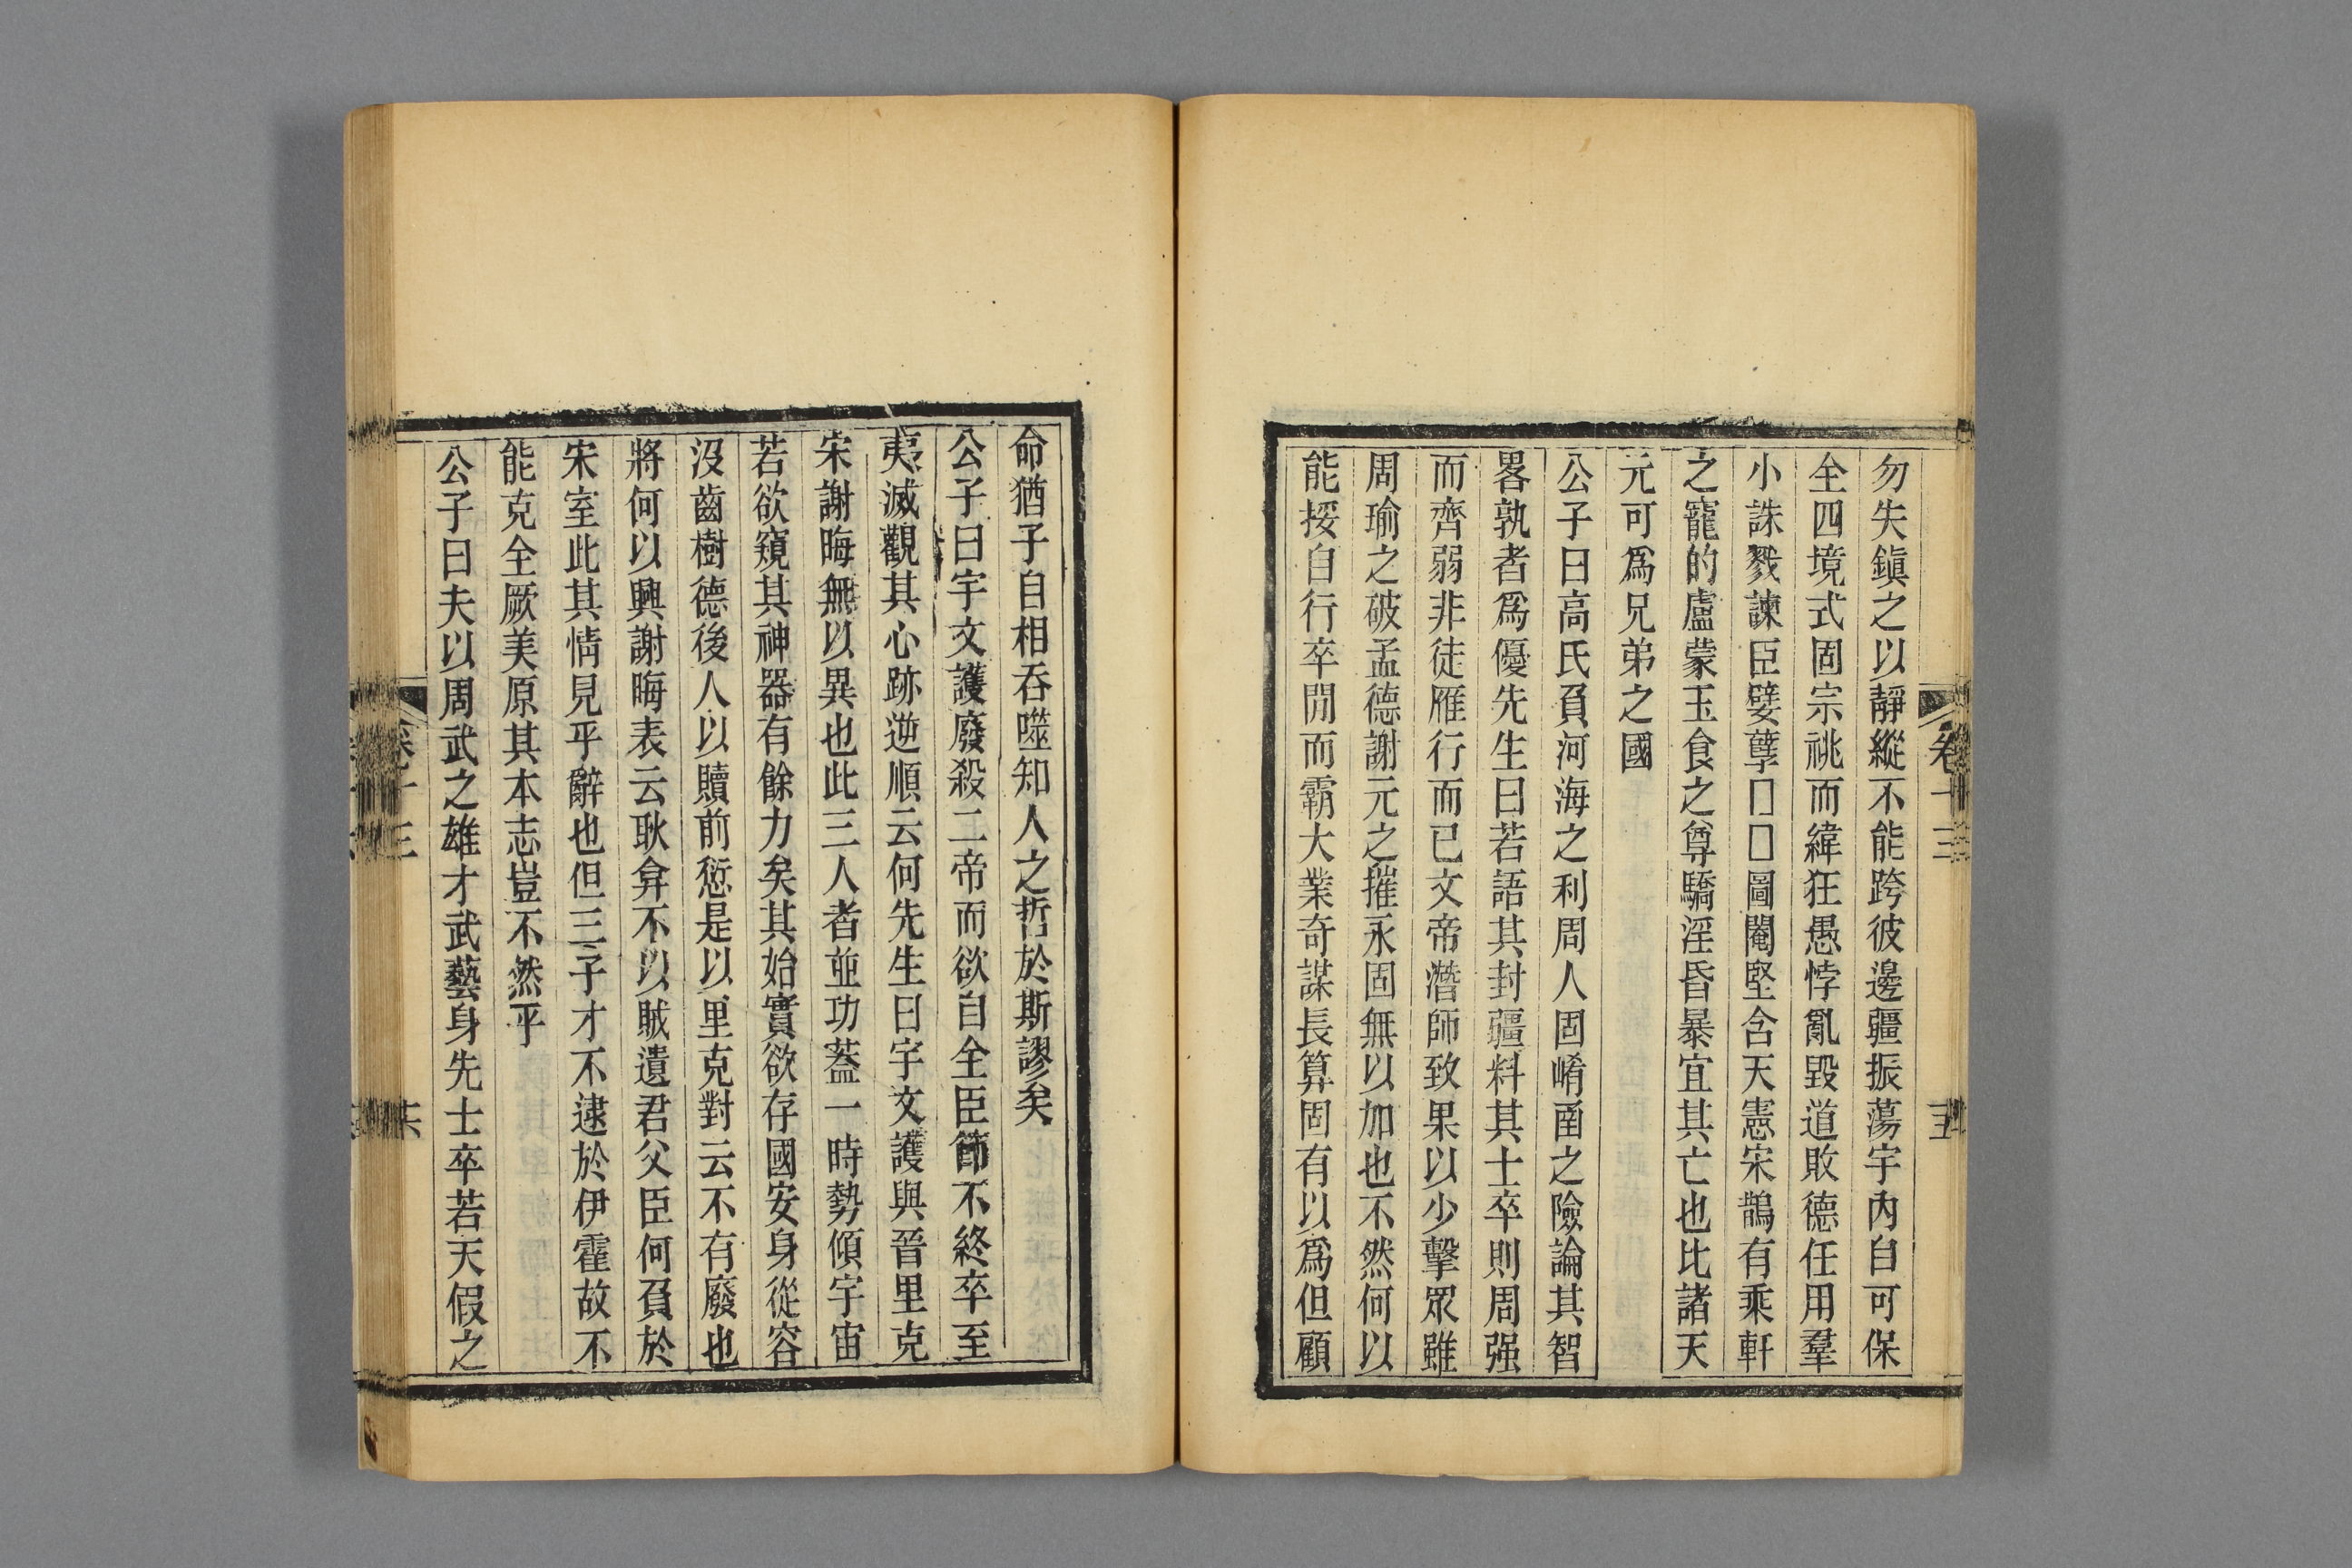 卷十三
十五
勿失鎭之以靜縱不能跨彼邊疆振蕩宇內自可保
全四境式固宗祧而緯狂愚悖亂毀道敗德任用羣
小誅戮諫臣嬖孽□□圖閹堅含天憲宋鵲有乘軒
之寵的盧蒙玉食之尊驕淫昏暴宜其亡也比諸天
元可爲兄弟之國
公子曰高氏負河海之利周人固崤圅之險論其智
畧孰者爲優先生曰若語其封疆料其士卒則周强
而齊弱非徒雁行而已文帝潛師致果以少擊眾雖
周瑜之破孟德謝元之摧永固無以加也不然何以
能挼自行卒閒而霸大業奇謀長算固有以爲但顧
命猶子自相吞噬知人之哲於斯謬矣
公子曰宇文護廢殺二帝而欲自全臣節不終卒至
夷滅觀其心跡逆順云何先生曰宇文護與晉里克
宋謝晦無以異也此三人者並功葢一時勢傾宇宙
若欲窺其神器有餘力矣其始實欲存國安身從容
沒齒樹德後人以贖前愆是以里克對云不有廢也
將何以興謝晦表云耿弇不以賊遺君父臣何負於
宋室此其情見乎辭也但三子才不逮於伊霍故不
能克全厥美原其本志豈不然乎
公子曰夫以周武之雄才武藝身先士卒若天假之
卷十三
十六